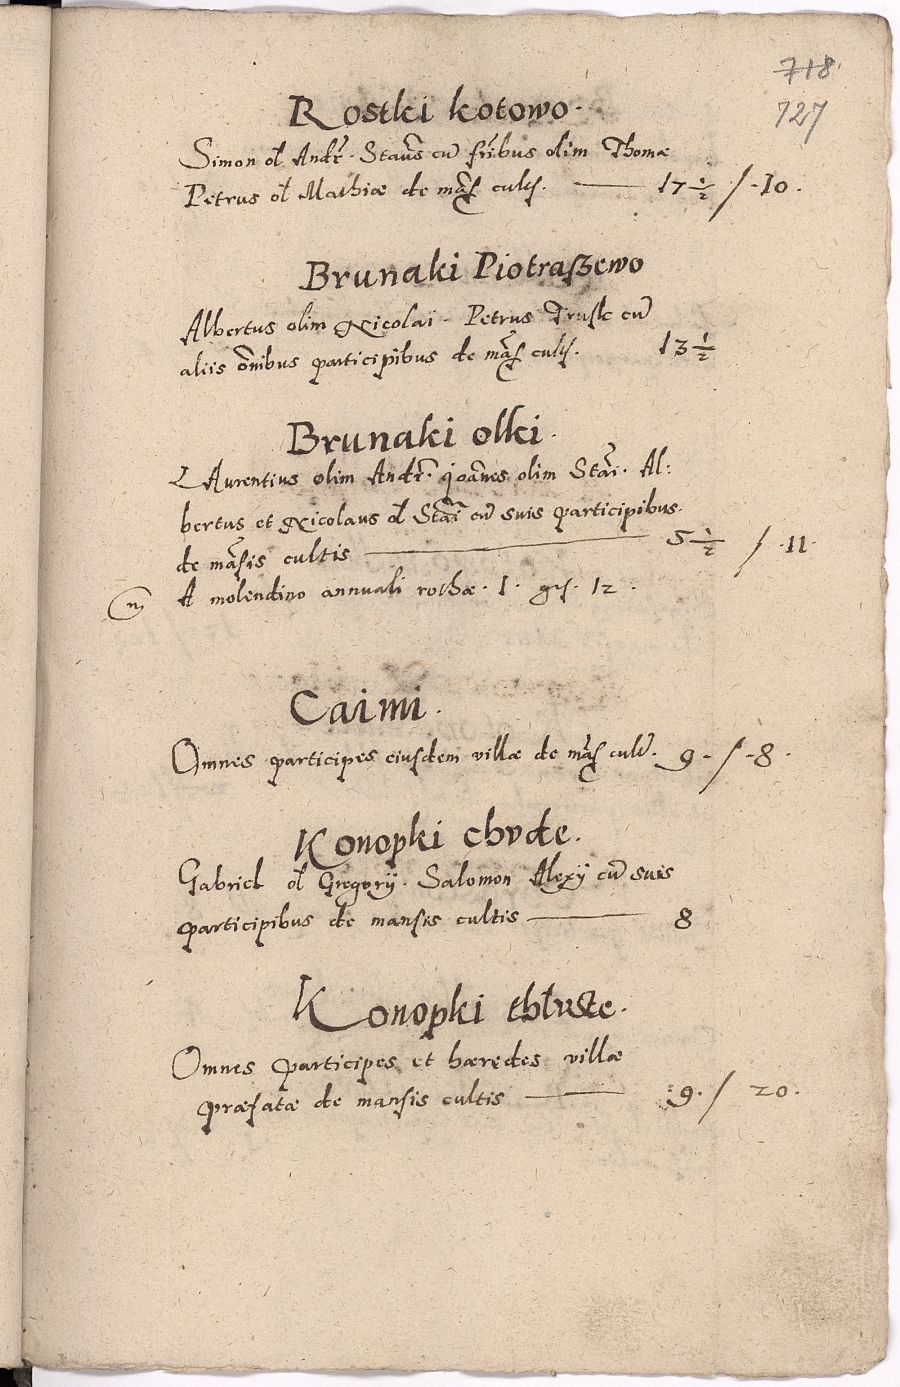 718
727
Rostki kotowo.
Simon ol Andr. Staus cu fribus olim Thomæ
Petrus ol Mathiæ de mas cult. 17 1/2 / .10.
Brunaki Piotraszewo
Albertus olim Nicolai. Petrus Trusk cu
aliis oibus participibus de mas cult. 13 1/2
Brunaki olki.
LAurentius olim Andr. Joanes olim Stai. Al:
bertus et Nicolaus ol Stai cu suis participibus.
de masis cultis 5 1/2 / .11.
A molendino annuali rothæ. 1. gr. 12.
Caimi.
Omnes participes eiusdem villæ de mas cult. 9. / .8.
Konopki chvde.
Gabriel ol Gregorij. Salomon Alexij cu suis
participibus de mansis cultis 8
Konopki thłuste.
Omnes participes et hæredes villæ
præfatæ de mansis cultis 9. / 20.